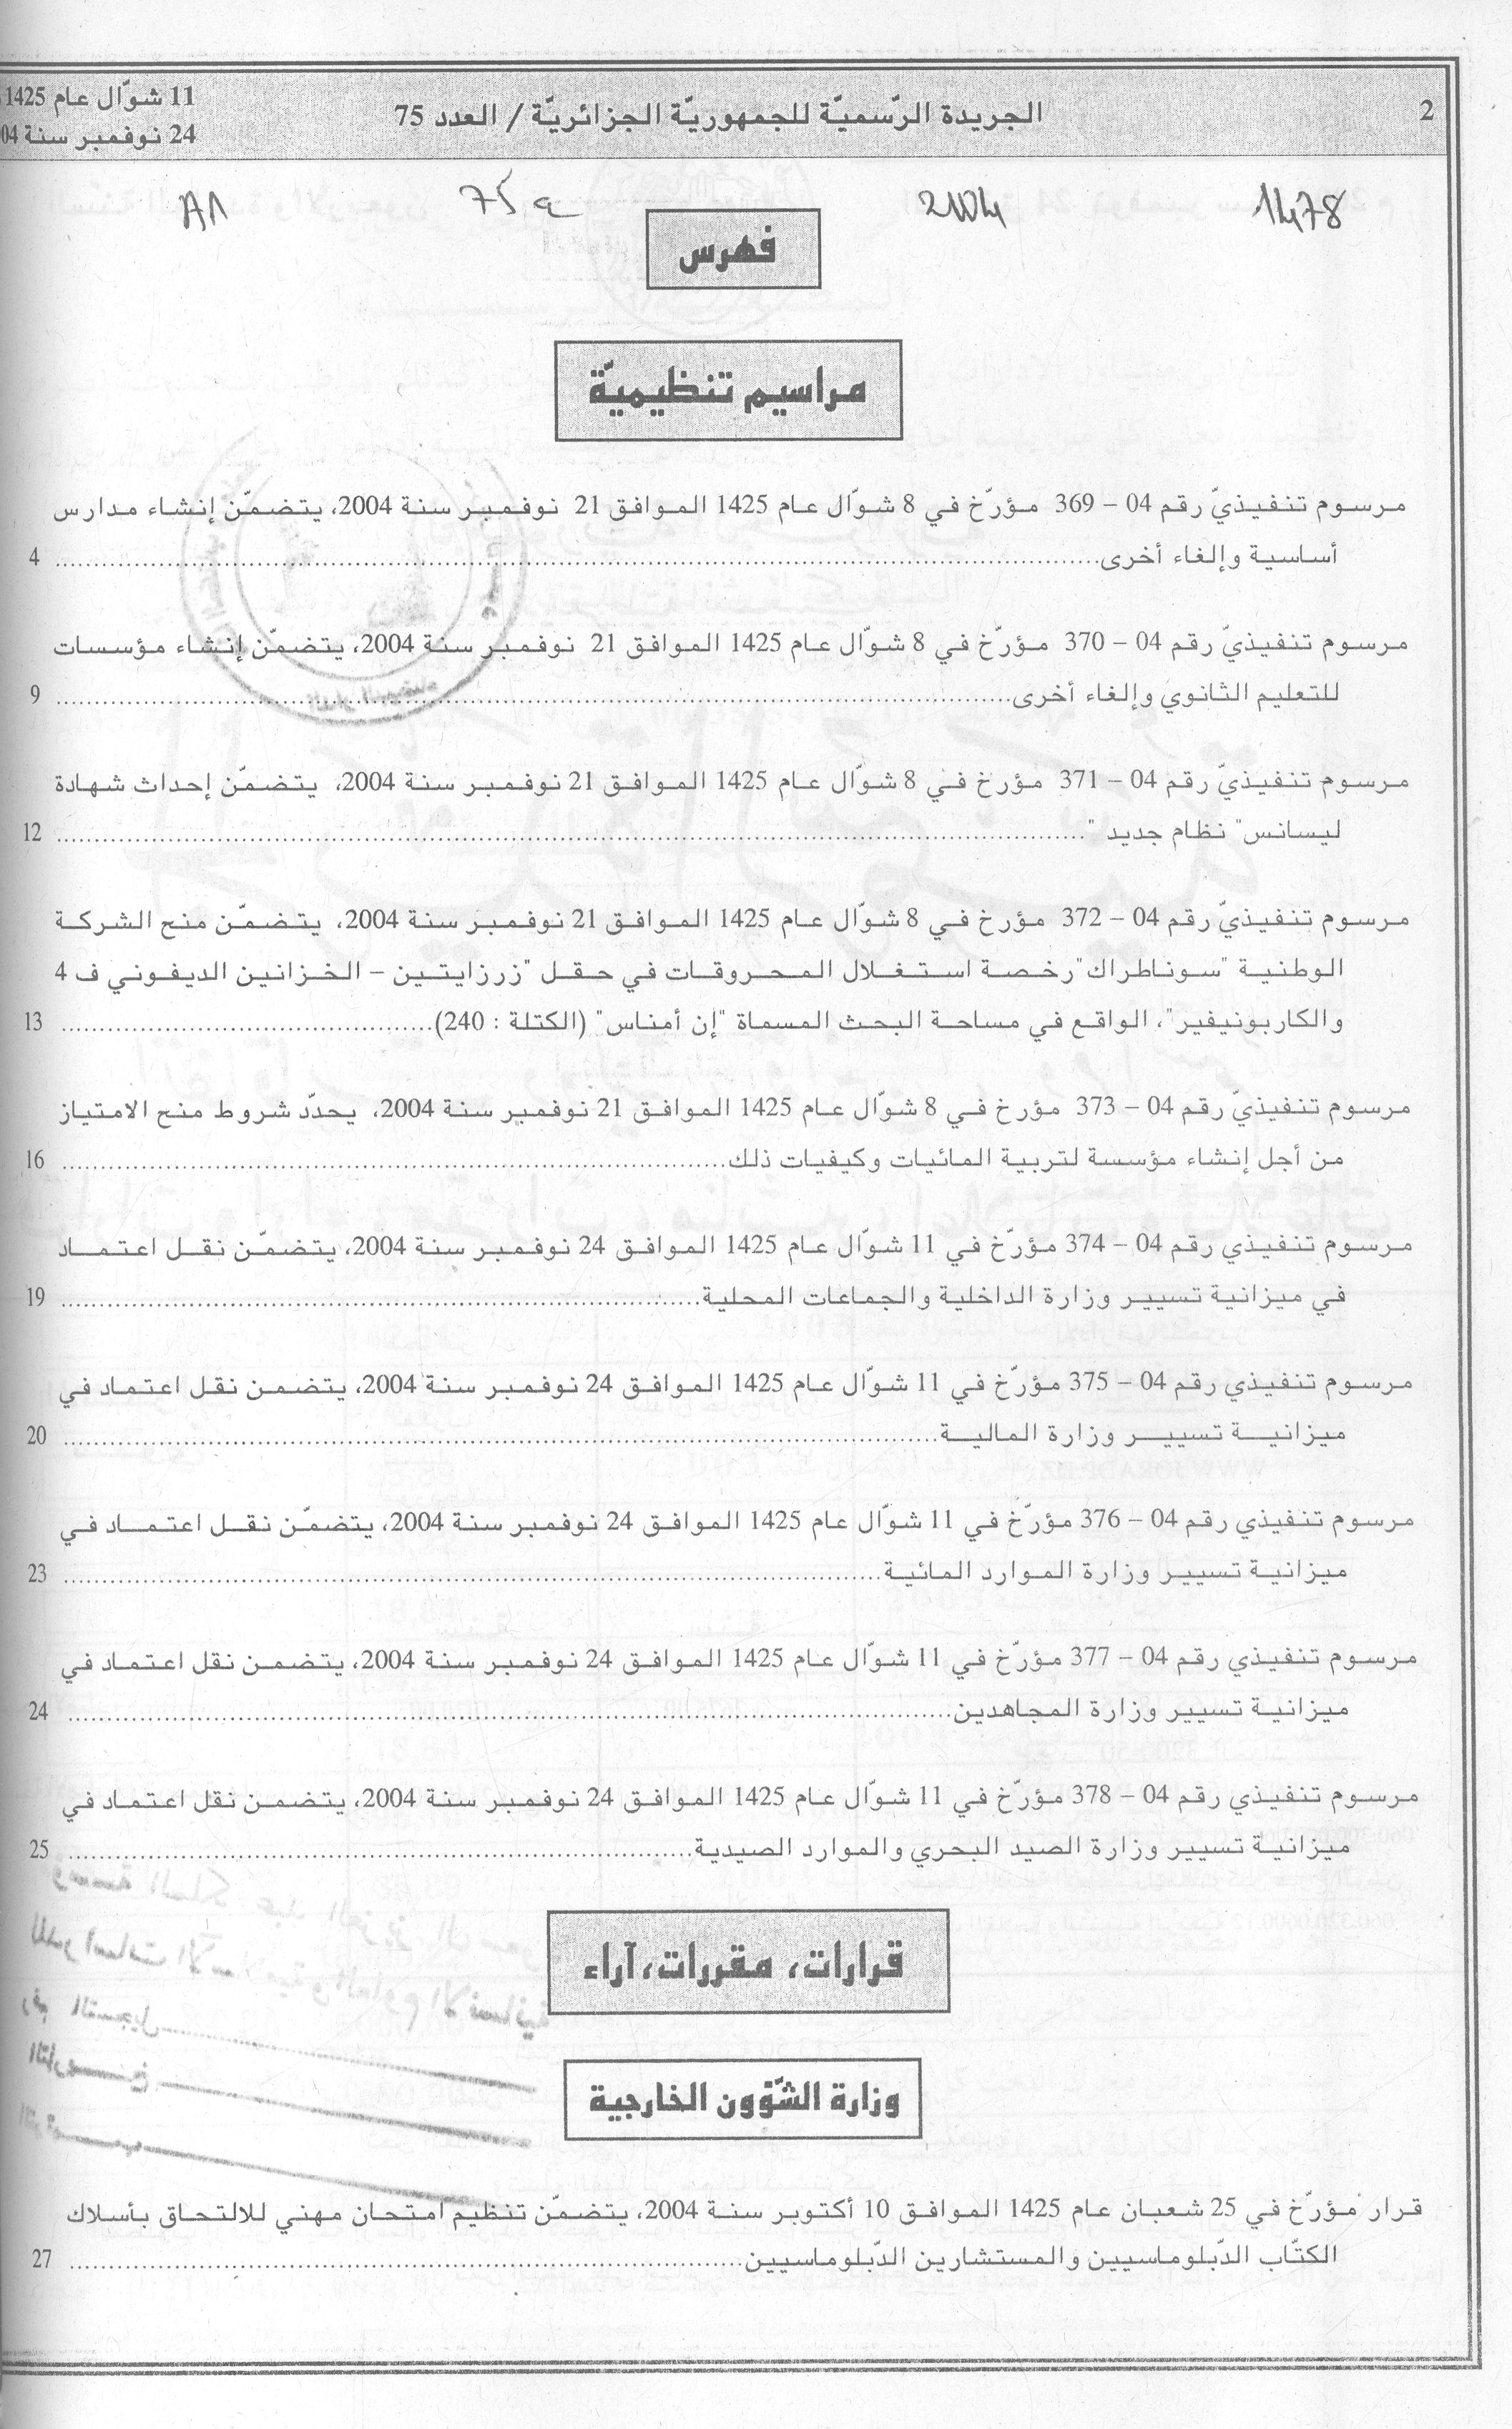 2
الجريدة الرّسميّة للجمهوريّة الجزائريّة / العدد 75
11 شوّال عام 1425
24 نوفمبر سنة 04
1478
2004
75 ع
A1
فهرس
مراسيم تنظيميّة
مرسوم تنفيذيّ رقم 04 – 369 مؤرّخ في 8 شوّال عام 1425 الموافق 21 نوفمبر سنة 2004، يتضمّن إنشاء مدارس
أساسية وإلغاء أخرى........................................ 4
مرسوم تنفيذيّ رقم 04 – 370 مؤرّخ في 8 شوّال عام 1425 الموافق 21 نوفمبر سنة 2004، يتضمّن إنشاء مؤسسات
للتعليم الثانوي وإلغاء أخرى........................................ 9
مرسوم تنفيذيّ رقم 04 – 371 مؤرخ في 8 شوّال عام 1425 الموافق 21 نوفمبر سنة 2004، يتضمّن إحداث شهادة
ليسانس" نظام جديد "........................................ 12
مرسوم تنفيذيّ رقم 04 – 372 مؤرخ في 8 شوّال عام 1425 الموافق 21 نوفمبر سنة 2004، يتضمّن منح الشركة
الوطنية "سوناطراك"رخصة استغلال المحروقات في حقل "زرزايتين – الخزانين الديفوني ف 4
والكاربونيفير"، الواقع في مساحة البحث المسماة "إن أمناس" (الكتلة : 240)........................................ 13
مرسوم تنفيذيّ رقم 04 – 373 مؤرخ في 8 شوّال عام 1425 الموافق 21 نوفمبر سنة 2004، يحدّد شروط منح الامتياز
من أجل إنشاء مؤسسة لتربية المائيات وكيفيات ذلك........................................ 16
مرسوم تنفيذي رقم 04 – 374 مؤرّخ في 11 شوّال عام 1425 الموافق 24 نوفمبر سنة 2004، يتضمّن نقل اعتماد
في ميزانية تسيير وزارة الداخلية والجماعات المحلية........................................ 19
مرسوم تنفيذي رقم 04 – 375 مؤرّخ في 11 شوّال عام 1425 الموافق 24 نوفمبر سنة 2004، يتضمن نقل اعتماد في
ميزانية تسيير وزارة المالية........................................ 20
مرسوم تنفيذي رقم 04 – 376 مؤرّخ في 11 شوّال عام 1425 الموافق 24 نوفمبر سنة 2004، يتضمّن نقل اعتماد في
ميزانية تسيير وزارة الموارد المائية........................................ 23
مرسوم تنفيذي رقم 04 – 377 مؤرّخ في 11 شوّال عام 1425 الموافق 24 نوفمبر سنة 2004، يتضمن نقل اعتماد في
ميزانية تسيير وزارة المجاهدين........................................ 24
مرسوم تنفيذي رقم 04 – 378 مؤرّخ في 11 شوّال عام 1425 الموافق 24 نوفمبر سنة 2004، يتضمن نقل اعتماد في
ميزانية تسيير وزارة الصيد البحري والموارد الصيدية........................................ 25
قرارات، مقررات، آراء
وزارة الشّؤون الخارجية
قرار مؤرّخ في 25 شعبان عام 1425 الموافق 10 أكتوبر سنة 2004، يتضمّن تنظيم امتحان مهني للالتحاق بأسلاك
الكتّاب الدّبلوماسيين والمستشارين الدّبلوماسيين........................................ 27